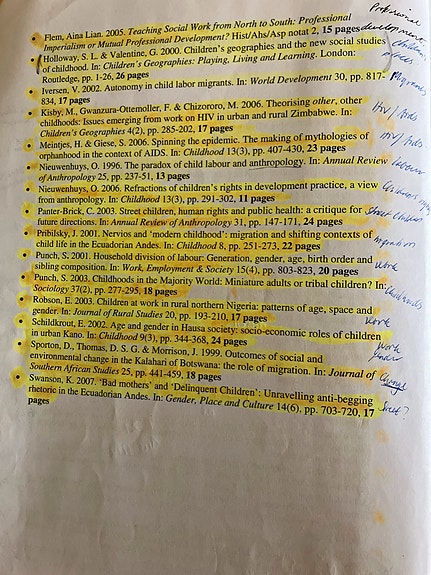 Professional
• Flem, Aina Lian. 2005. Teaching Social Work from North to South: Professional development
Imperialism or Mutual Professional Development? Hist/Ahs/Asp notat 2, 15 pages
• Holloway, S. L. & Valentine, G. 2000. Children's geographies and the new social studies
of childhood. In: Children's Geographies: Playing, Living and Learning. London:
Routledge, pp. 1-26, 26 pages
• Iversen, V. 2002. Autonomy in child labor migrants. In: World Development 30, pp. 817-
834, 17 pages
• Kisby, M., Gwanzura-Ottemoller, F. & Chizororo, M. 2006. Theorising other, other HIV/Aids
childhoods: Issues emerging from work on HIV in urban and rural Zimbabwe. In:
Children's Geographies 4(2), pp. 285-202, 17 pages
• Meintjes, H & Giese, S. 2006. Spinning the epidemic. The making of mythologies of HIV/Aids
orphanhood in the context of AIDS. In: Childhood 13(3), pp. 407-430, 23 pages
• Nieuwenhuys, O. 1996. The paradox of child labour and anthropology. In: Annual Review
of Anthropology 25, pp. 237-51, 13 pages
• Nieuwenhuys, O. 2006. Refractions of children's rights in development practice, a view
from anthropology. In: Childhood 13(3), pp. 291-302, 11 pages
• Panter-Brick, C. 2003. Street children, human rights and public health: a critique for Street children
future directions. In: Annual Review of Anthropology 31, pp. 147-171, 24 pages
• Pribilsky, J. 2001. Nervios and 'modern childhood': migration and shifting contexts of migration
child life in the Ecuadorian Andes. In: Childhood 8, pp. 251-273, 22 pages
• Punch, S. 2001. Household division of labour: Generation, gender, age, birth order and work
sibling composition. In: Work, Employment & Society 15(4), pp. 803-823, 20 pages
• Punch, S. 2003. Childhoods in the Majority World: Miniature adults or tribal children? In: Childhoods
Sociology 37(2), pp. 277-295, 18 pages
• Robson, E. 2003. Children at work in rural northern Nigeria: patterns of age, space and
gender. In: Journal of Rural Studies 20, pp. 193-210, 17 pages work
• Schildkrout, E. 2002. Age and gender in Hausa society: socio-economic roles of children
in urban Kano. In: Childhood 9(3), pp. 344-368, 24 pages work
• Sporton, D., Thomas, D. S. G. & Morrison, J. 1999. Outcomes of social and
environmental change in the Kalahari of Botswana: the role of migration. In: Journal of Change
Southern African Studies 25, pp. 441-459, 18 pages
• Swanson, K. 2007. 'Bad mothers' and 'Delinquent Children': Unravelling anti-begging
rhetoric in the Ecuadorian Andes. In: Gender, Place and Culture 14(6), pp. 703-720, 17
pages